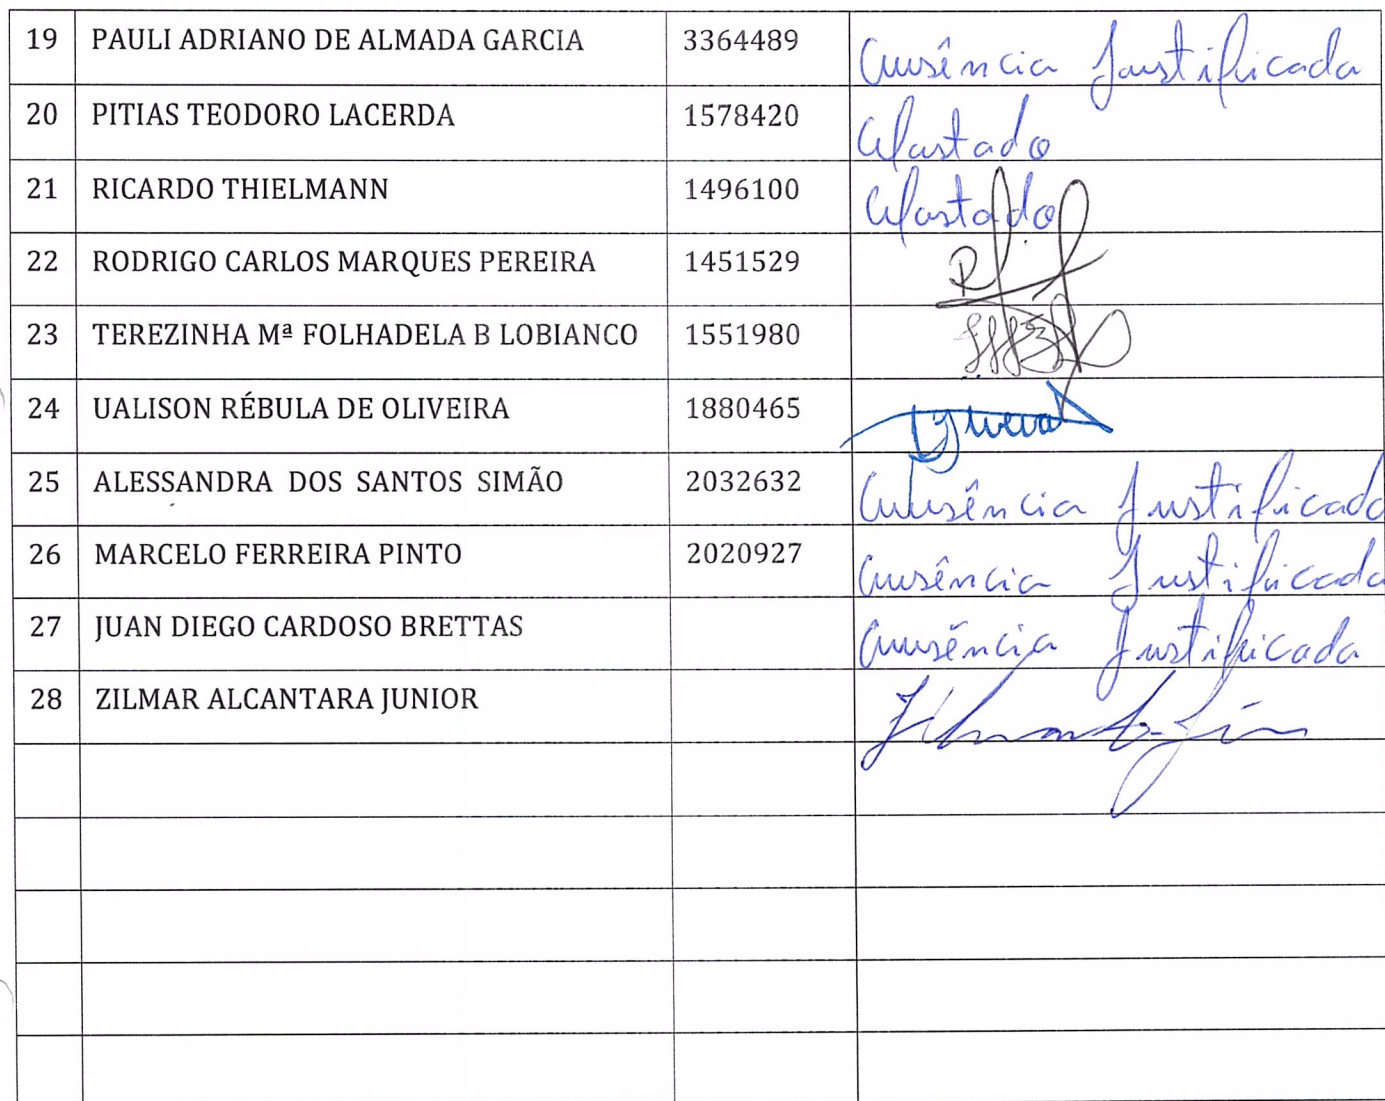 19 PAULI ADRIANO DE ALMADA GARCIA 3364489 Ausência Justificada
20 PITIAS TEODORO LACERDA 1578420 Afastado
21 RICARDO THIELMANN 1496100 Afastado
22 RODRIGO CARLOS MARQUES PEREIRA 1451529
23 TEREZINHA Mª FOLHADELA B LOBIANCO 1551980
24 UALISON RÉBULA DE OLIVEIRA 1880465
25 ALESSANDRA DOS SANTOS SIMÃO 2032632 Ausência Justificada
26 MARCELO FERREIRA PINTO 2020927 Ausência Justificada
27 JUAN DIEGO CARDOSO BRETTAS Ausência Justificada
28 ZILMAR ALCANTARA JUNIOR